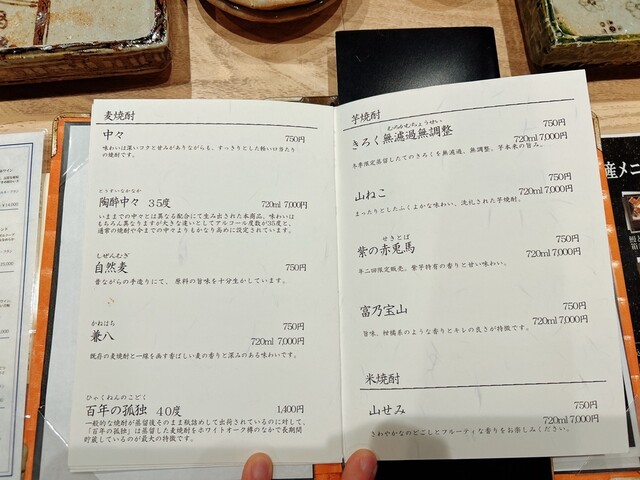 麦焼酎
中々
750円
味わいは深いコクと甘みがありながらも、すっきりとした軽い口当たり
の焼酎です。
とうすいなかなか
陶酔中々 35度
720ml 7,000円
いままでの中々とは異なる配合にて生み出された本商品、味わいは
もちろん異なりますが大きな違いとしてアルコール度数が35度と、
通常の焼酎や今までの中々よりもかなり高めに設定されています。
しぜんむぎ
自然麦
750円
昔ながらの手造りにて、原料の旨味を十分生かしています。
かねはち
兼八
750円
720ml 7,000円
既存の麦焼酎と一線を画す香ばしい麦の香りと深みのある味わいです。
ひゃくねんのこどく
百年の孤独 40度
1,400円
一般的な焼酎が蒸留後そのまま瓶詰めして出荷されているのに対して、
「百年の孤独」は蒸留した麦焼酎をホワイトオーク樽のなかで長期間
貯蔵しているのが最大の特徴です。
芋焼酎
むろかむちょうせい
きろく無濾過無調整
750円
720ml 7,000円
冬季限定蒸留したてのきろくを無濾過、無調整。芋本来の旨み。
山ねこ
750円
720ml 7,000円
まったりとしたふくよかな味わい、洗礼された芋焼酎。
せきとば
紫の赤兎馬
750円
720ml 7,000円
年二回限定販売。紫芋特有の香りと甘い味わい。
富乃宝山
750円
720ml 7,000円
旨味、柑橘系のような香りとキレの良さが特徴です。
米焼酎
山せみ
750円
720ml 7,000円
さわやかなのどごしとフルーティな香りをお楽しみください。
産メニ